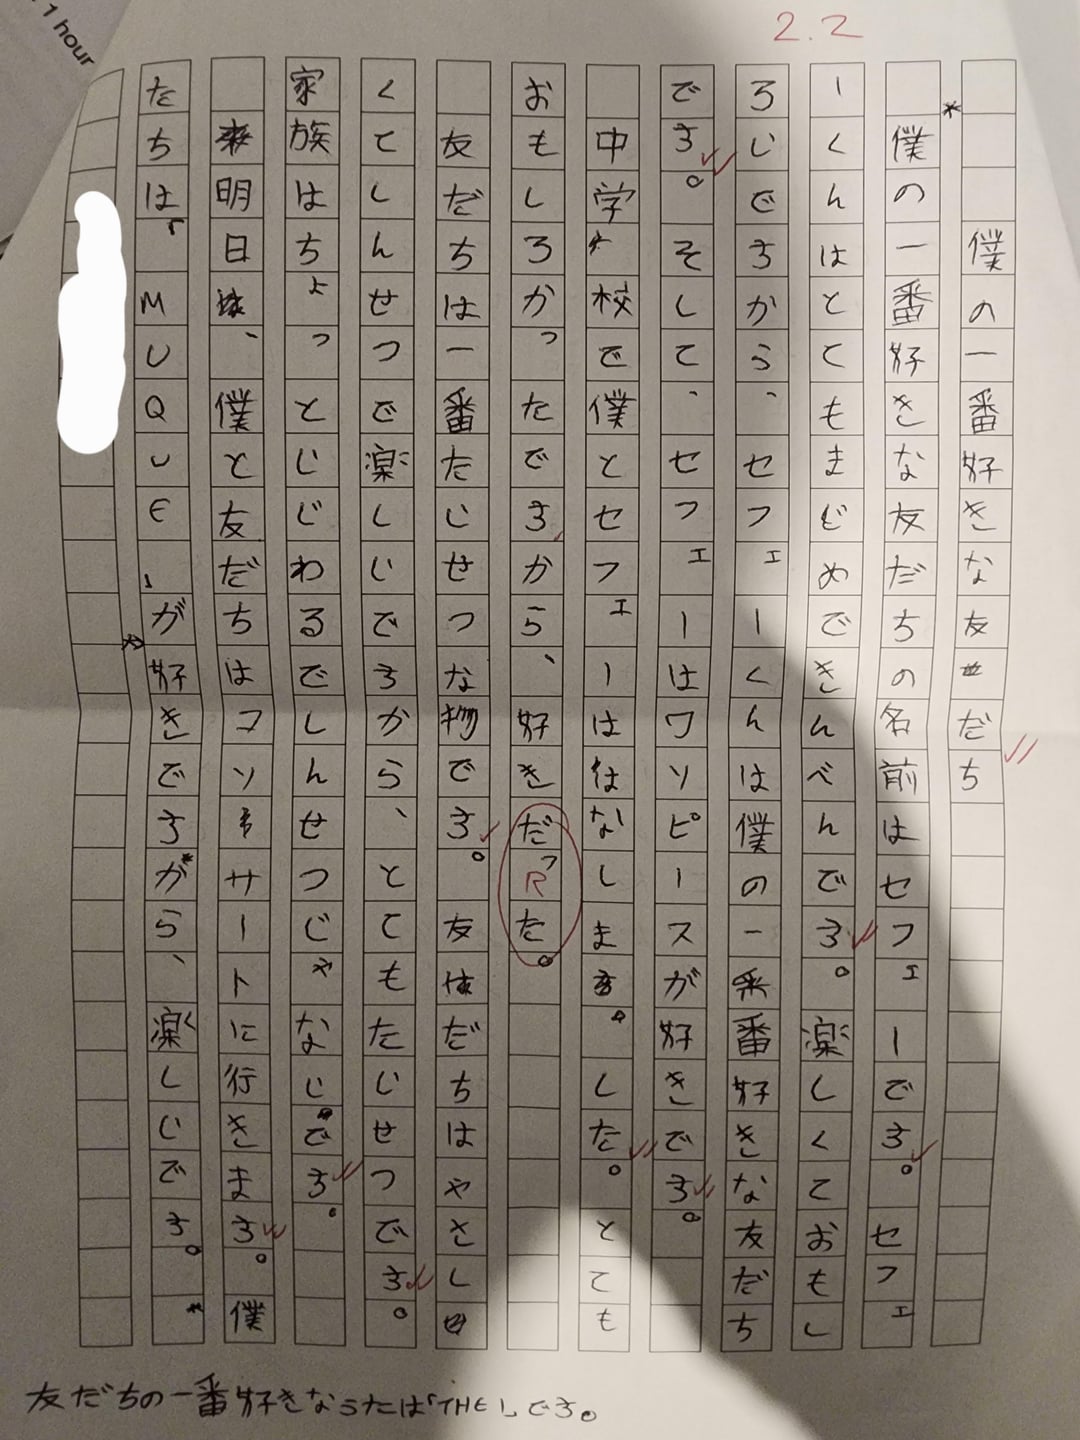 1 hour
2.2
僕の一番好きな友だち
僕の一番好きな友だちの名前はセフェーです。セフェ
ーくんはとてもまじめできんべんです。楽しくておもし
ろいですから、セフェーくんは僕の一番好きな友だち
です。そして、セフェーはワンピースが好きです。
中学校で僕とセフェーははなしました。とても
おもしろかったですから、好きだった。
友だちは一番たいせつな物です。友だちはやさし
くてしんせつで楽しいですから、とてもたいせつです。
家族はちょっといじわるでしんせつじゃないです。
明日、僕と友だちはコンサートに行きます。僕
たちは「MUQUE」が好きですから、楽しいです。
友だちの一番好きなうたは「THE」です。